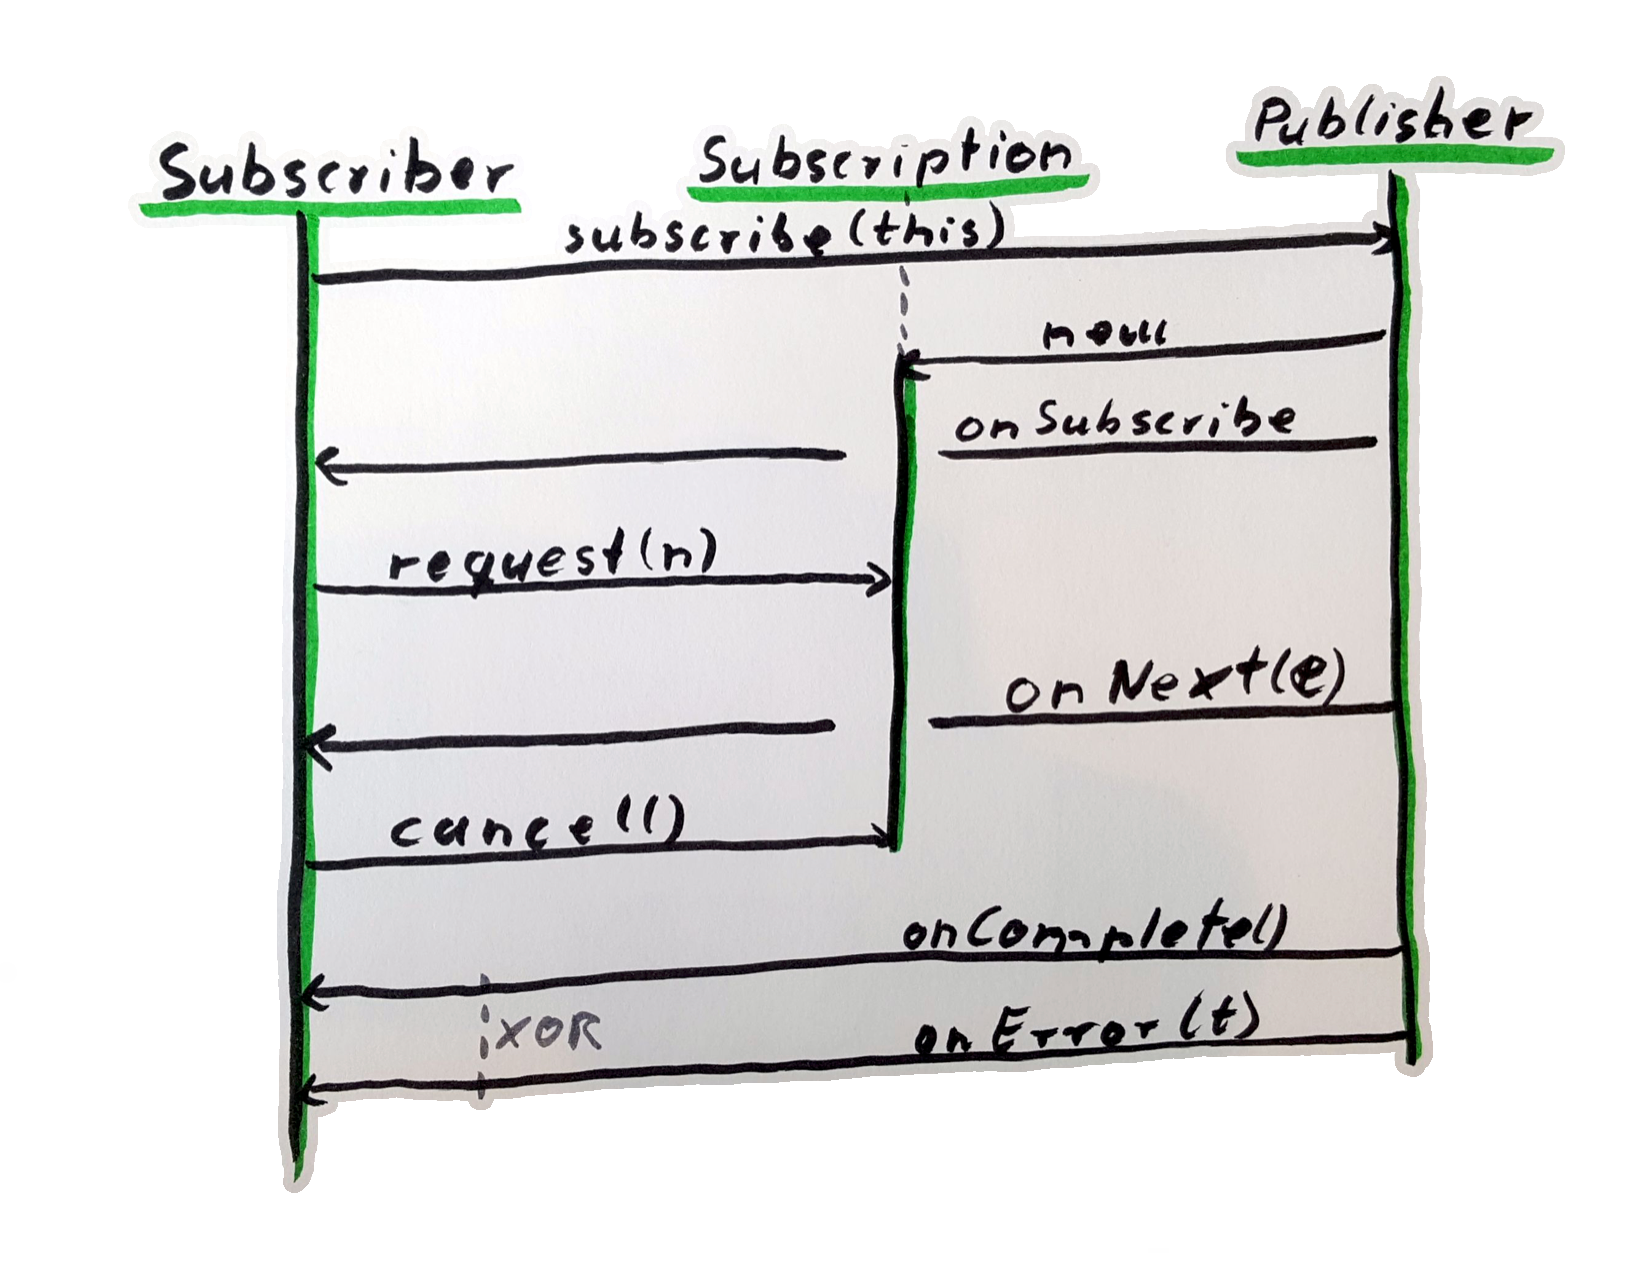 Subscriber
Subscription
Publisher
subscribe(this)
new
onSubscribe
request(n)
onNext(e)
cancel()
onComplete()
XOR
onError(t)